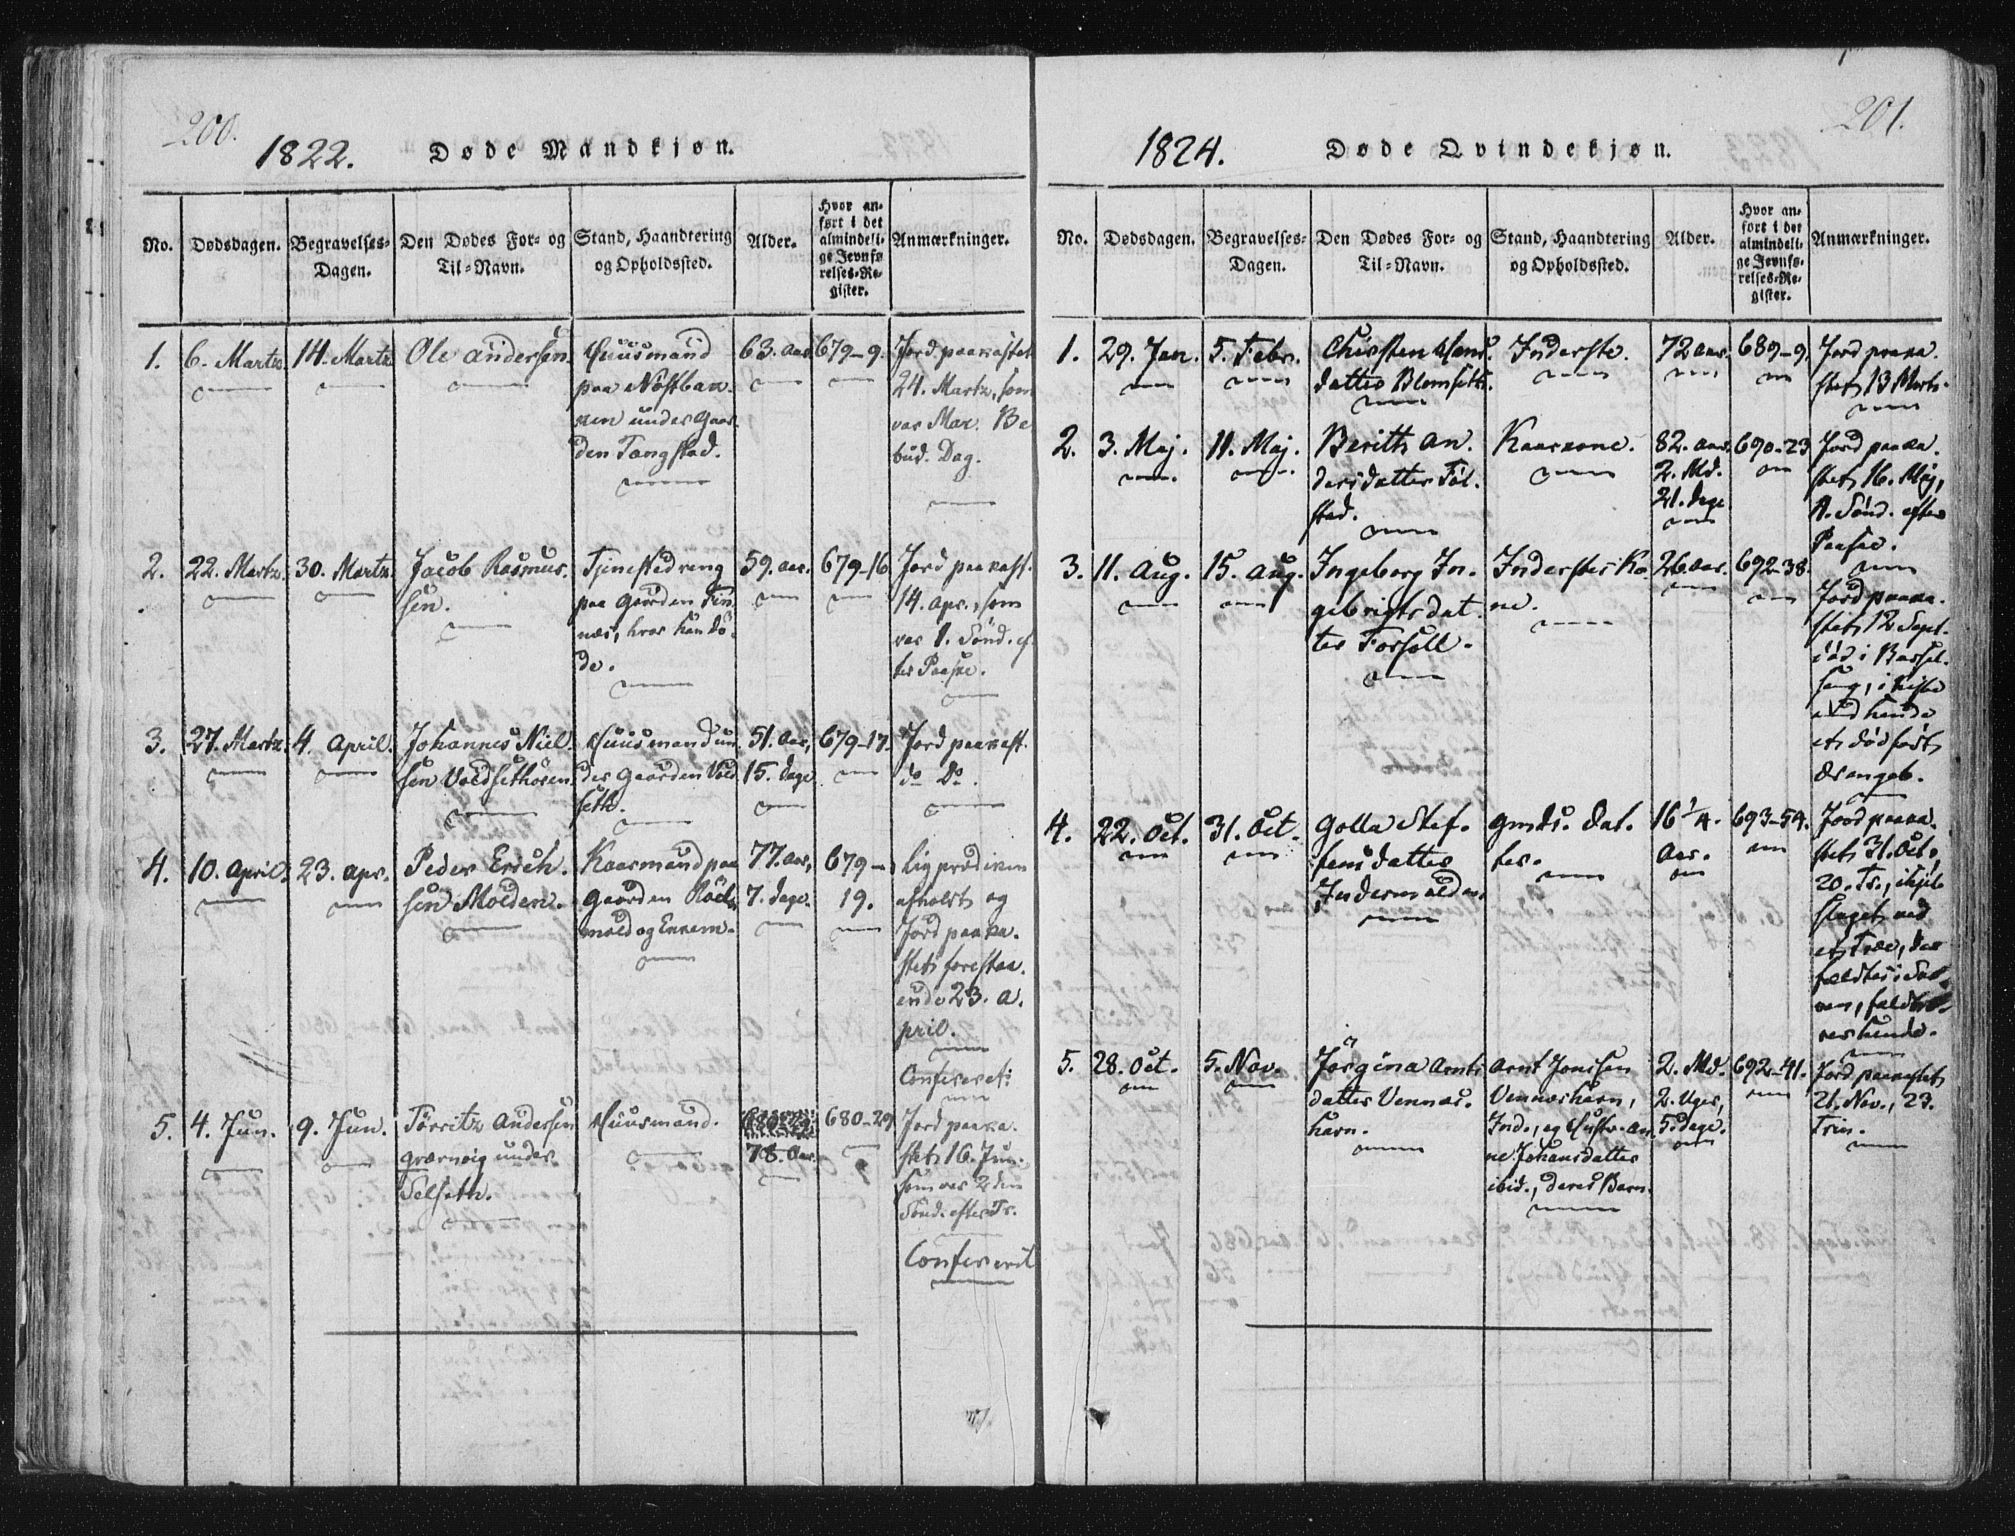 200.
1822. Døde Mandkjøn.
No.
Dødsdagen.
Begravelses-
Dagen.
Den Dødes For- og
Til-Navn.
Stand, Haandtering
og Opholdssted.
Alder.
Hvor an-
ført i det
almindeli-
ge Jevnfø-
relses-Re-
gister.
Anmærkninger.
1.
6. Martz.
14. Martz.
Ole Andersen.
Huusmand
paa Nøstban-
den Tangstad.
63. aar.
679-9.
Jord paakastet
24. Martz, som
var Mar. Be
bud. Dag.
2.
22. Martz.
30. Martz.
Jacob Rasmus-
sen.
Tjenestedreng
paa Gaarden Fin
næs, hvor han dö-
de.
59. aar.
679-16
Jord paakast.
14. apr., som
var 1. Sönd. ef-
ter Paaske.
3.
27. Martz.
4. April.
Johannes Niel-
sen Voldsethosen
Huusmand un
der Gaarden Vold
seth.
51. Aar,
15. Dage
679-17.
Jord paakast.
do Do.
4.
10. April.
23. apr.
Peder Erich-
sen Molden.
Kaarmand paa
Gaarden
77. aar,
7. Dage.
679-
19.
Ligprædiken
afholdt og
Jord paaka-
stet forestaa-
ende 23. A-
pril.
Confereret:
5.
4. Jun.
9. Jun.
Törritz Andersen
under
Selseth.
Huusmand.
78. Aar.
680-29
Jord paaka-
stet 16. Jun.
som var 2den
Sönd. efter Tr.
Confererit
201.
1824. Døde Qvindekjøn.
No.
Dødsdagen.
Begravelses-
Dagen.
Den Dødes For- og
Til-Navn.
Stand, Haandtering
og Opholdssted.
Alder.
Hvor an-
ført i det
almindeli-
ge Jevnfø-
relses-Re-
gister.
Anmærkninger.
1.
29. Jan.
5. Febr.
Christen Hans-
datter
Inderste.
72 aar.
689-9.
Jord paaka-
stet 13 Marts.
2.
3. Maj.
11. Maj.
Berith An-
dersdatter Töl-
stad.
Kaarkone.
82. aar.
2. Md.
21. Dage
690-23
Jord paaka-
stet 16. Maj,
1. Sönd. efter
Paaske.
3.
11. Aug.
15. Aug.
Ingeborg In-
gebrigtsdat-
ter Forsöll.
Inderster Ko-
ne.
26. aar.
692-38.
Jord paaka-
stet 12 Sept.
död i Barsel-
seng, i Kiste
med hende
et dödfödt
Drengeb.
4.
22. Oct.
31. Oct.
Golla Stef-
fensdatter
Indermolden.
Gmds. Dat-
ter.
16 1/4.
Aar.
693-54.
Jord paaka-
stet 31. Oct.,
20. Tr., ihjel-
slaget ved
et Træe, der
fældtes i Sko-
ven, faldt o-
ver hende.
5.
28. Oct.
5. Nov.
Jörgina Arnts
datter Vennæs-
havn.
Arnt Jonssen
Vennæshavn,
Ind., og Hustr. An-
ne Johansdatter
ibid., deres Barn.
2. Md.
2. Uger,
5. Dage.
692-41.
Jord paakastet
21. Nov., 23.
Trin.